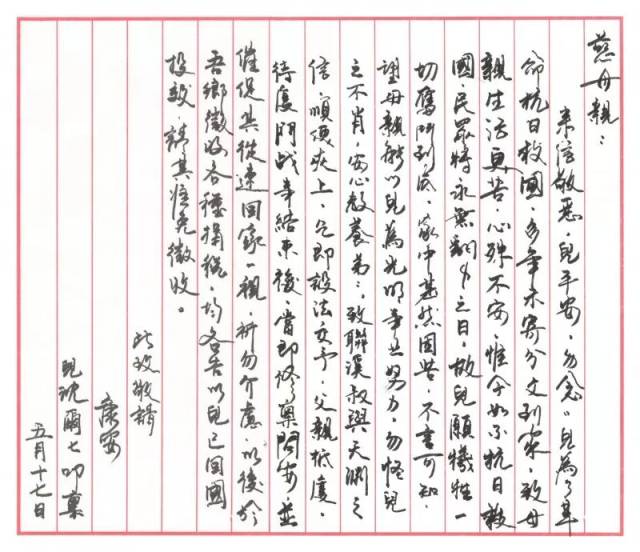 慈母親：
来信敬悉，兒平安，勿念。兒為了革
命抗日救國，多年未寄分文到家，致母
親生活更苦，心殊不安，惟今如不抗日救
國，民眾將永無翻身之日，故兒願犧牲一
切奮鬥到底，家中甚然困苦，不言可知，
望母親能以兒為光明事業努力，勿怪兒
之不肖，安心教養弟：，致聯溪叔與天淵之
信，順便夾上，乞即設法交予，父親抵廈，
待廈門戰事結束後，當即修稟問安，並
催促其從速回家一視，祈勿介意，以後於
吾鄉徵收各種捐稅，均各告以兒已回國
投效，請其豁免徵收。
此致敬請
康安
兒沈爾七叩稟
五月十七日